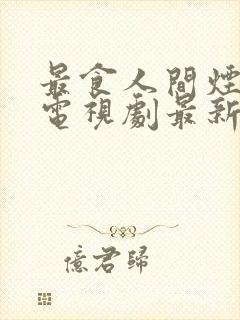 最食人間煙
電視劇最新
億君歸